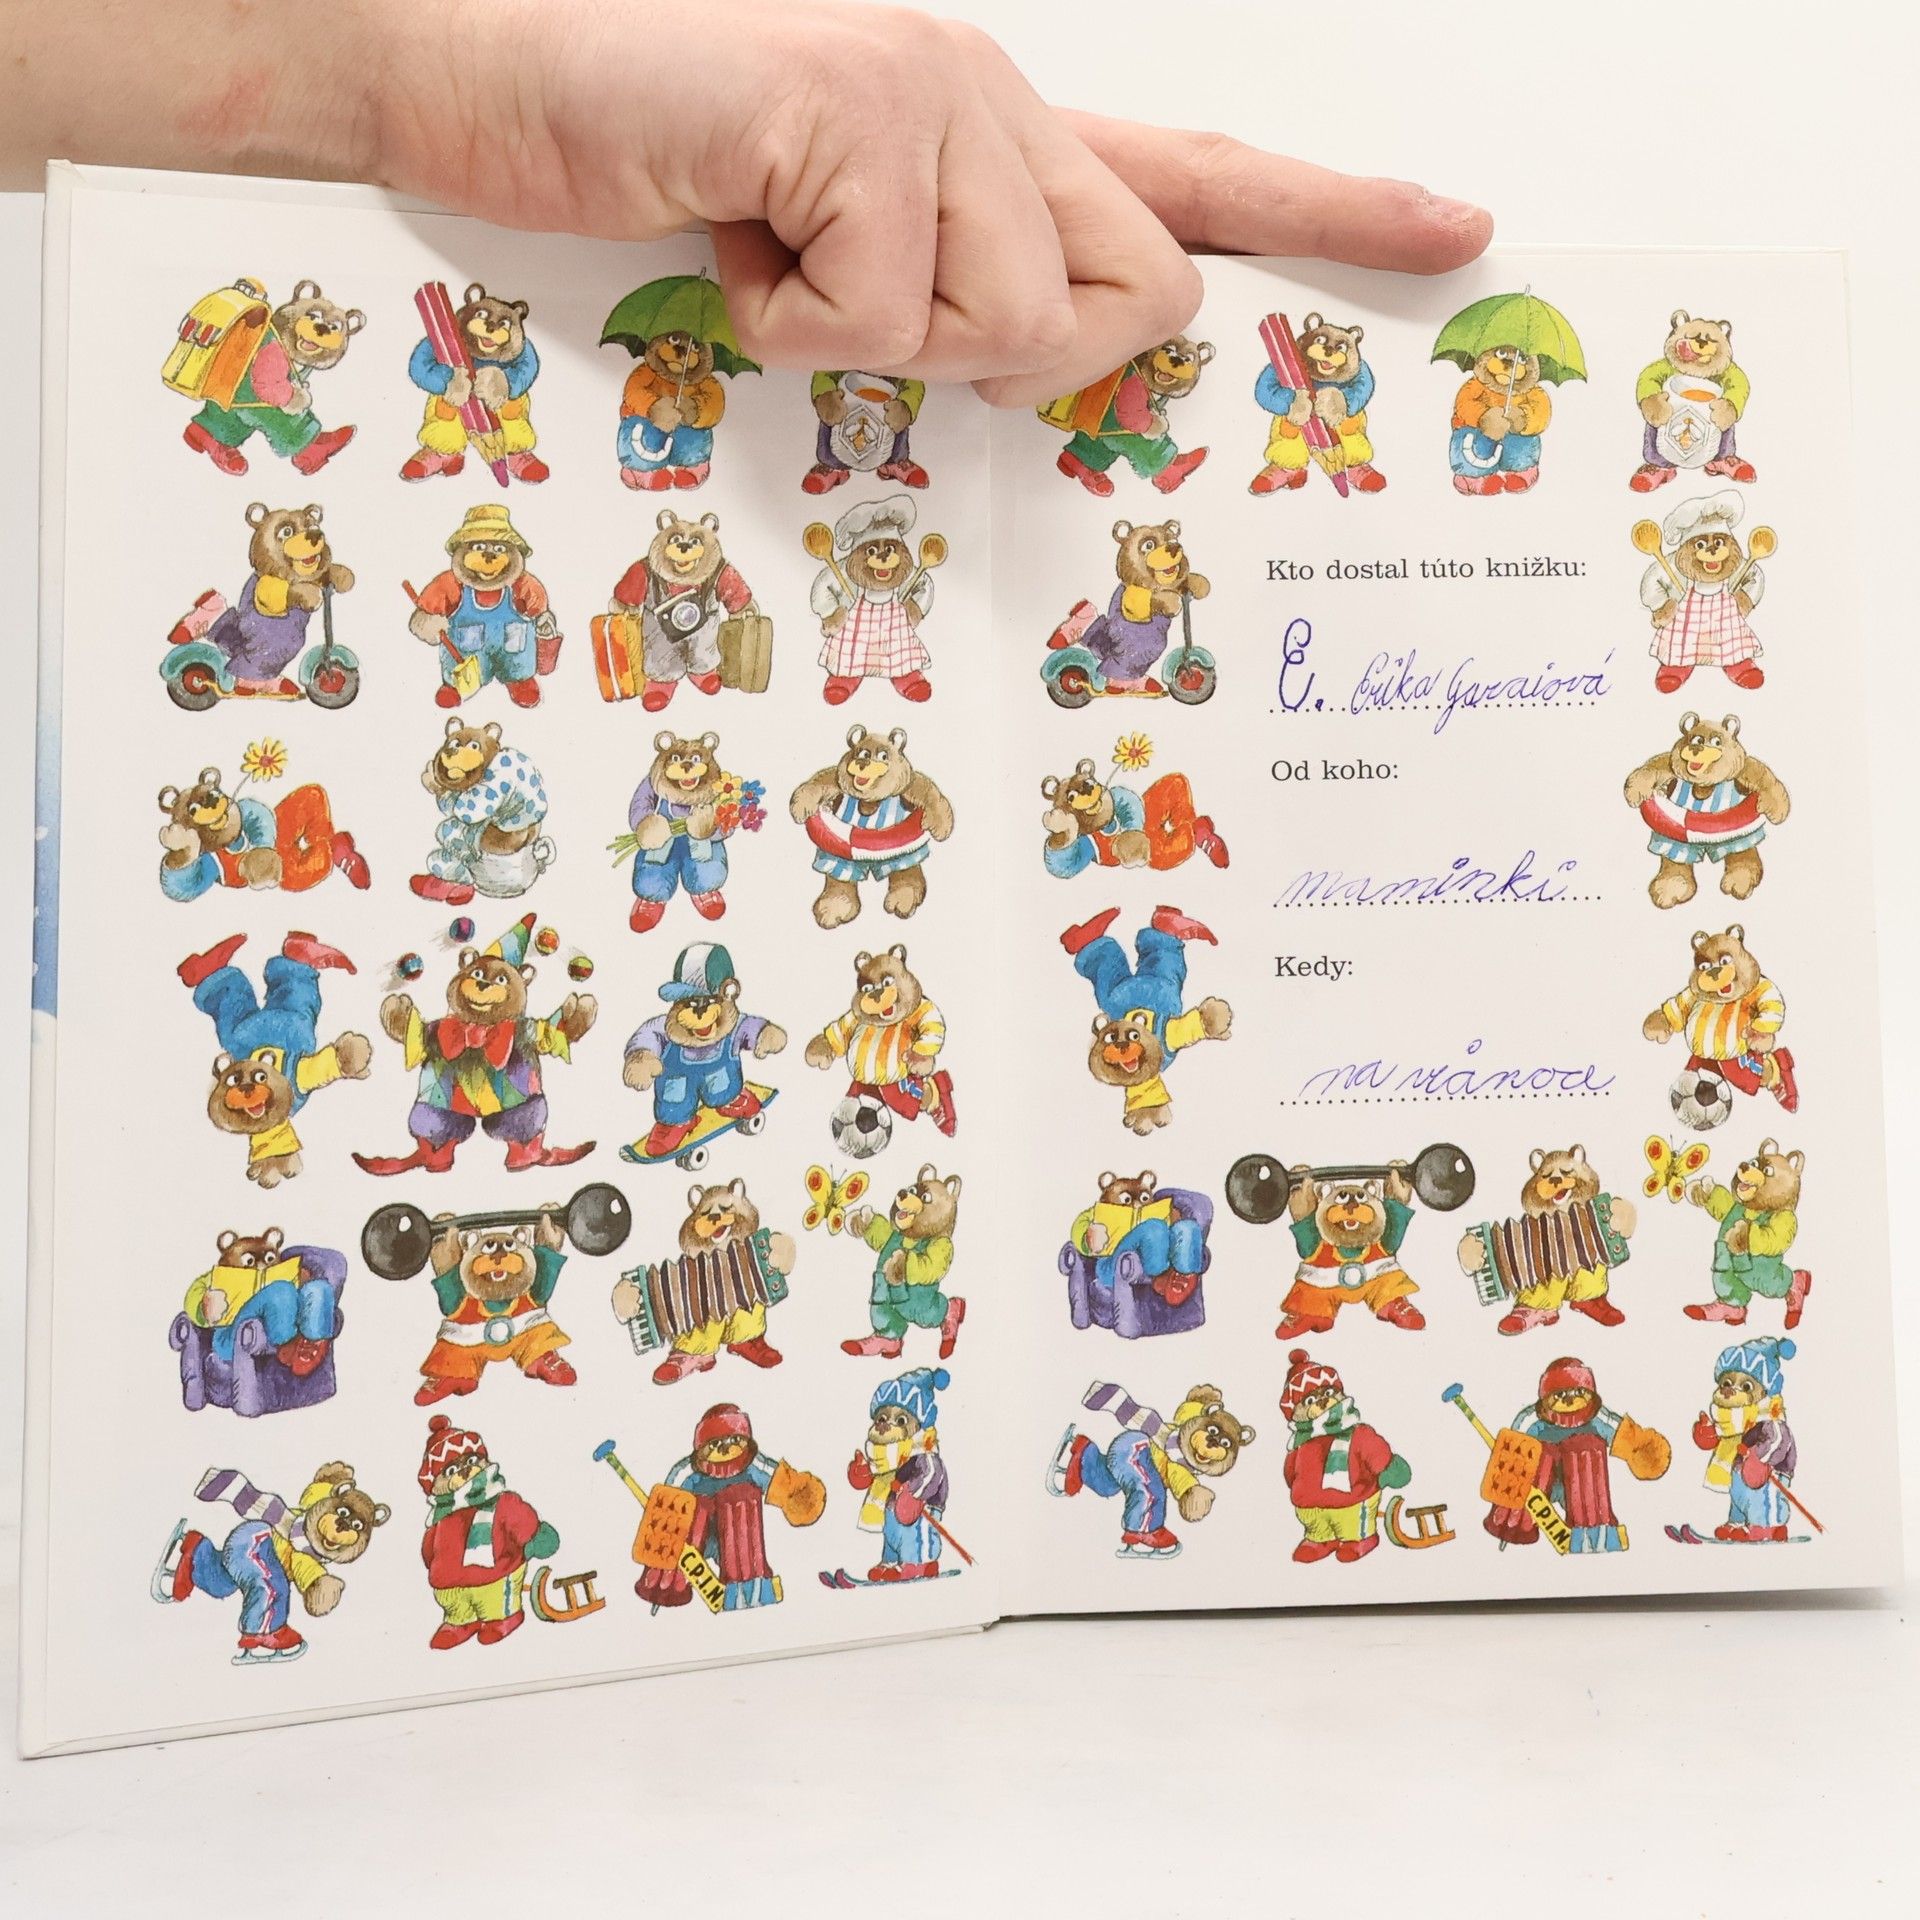 Kto dostal túto knižku:
E. Erika Garaiová
Od koho:
maminki
Kedy:
na viánoce
C.P.I.N.
C.P.I.N.